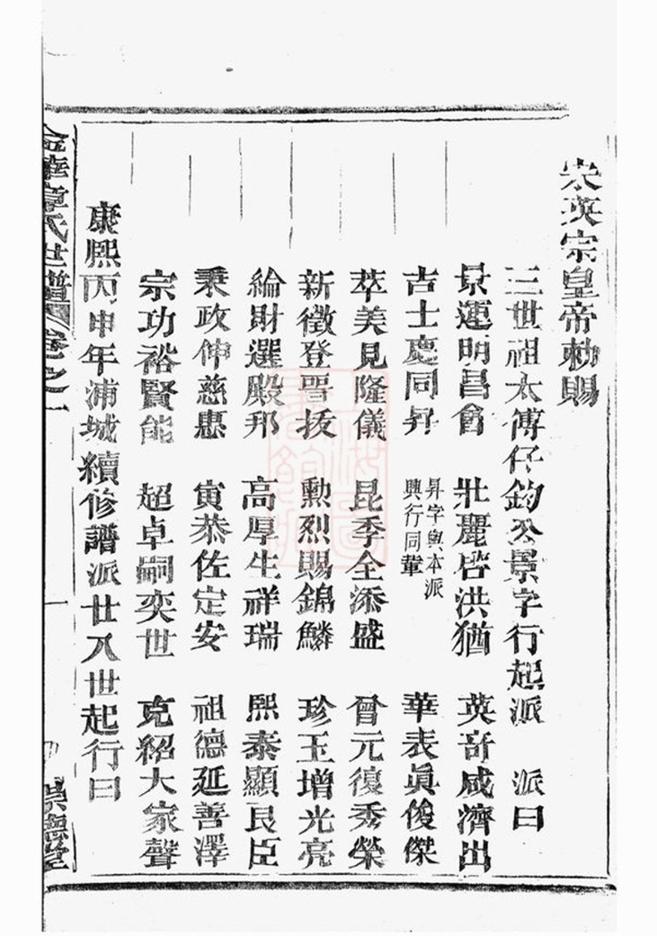 宋英宗皇帝勅賜
三世祖太傅仔鈞公景字行起派　派曰
景運明昌會　壯麗啓洪猶　英奇咸濟出
吉士慶同昇　昇字與本派興行同輩　華表眞俊傑
萃美見隆儀　昆季全添盛　曾元復秀榮
新徵登晋拔　勳烈賜錦鱗　珍玉增光亮
綸財選殿邦　高厚生祥瑞　熙泰顯良臣
秉政伸慈惠　寅恭佐定安　祖德延善澤
宗功裕賢能　超卓嗣奕世　克紹大家聲
康熙丙申年浦城續修譜派廿八世起行曰
金華章氏世譜　卷之一　一　崇德堂